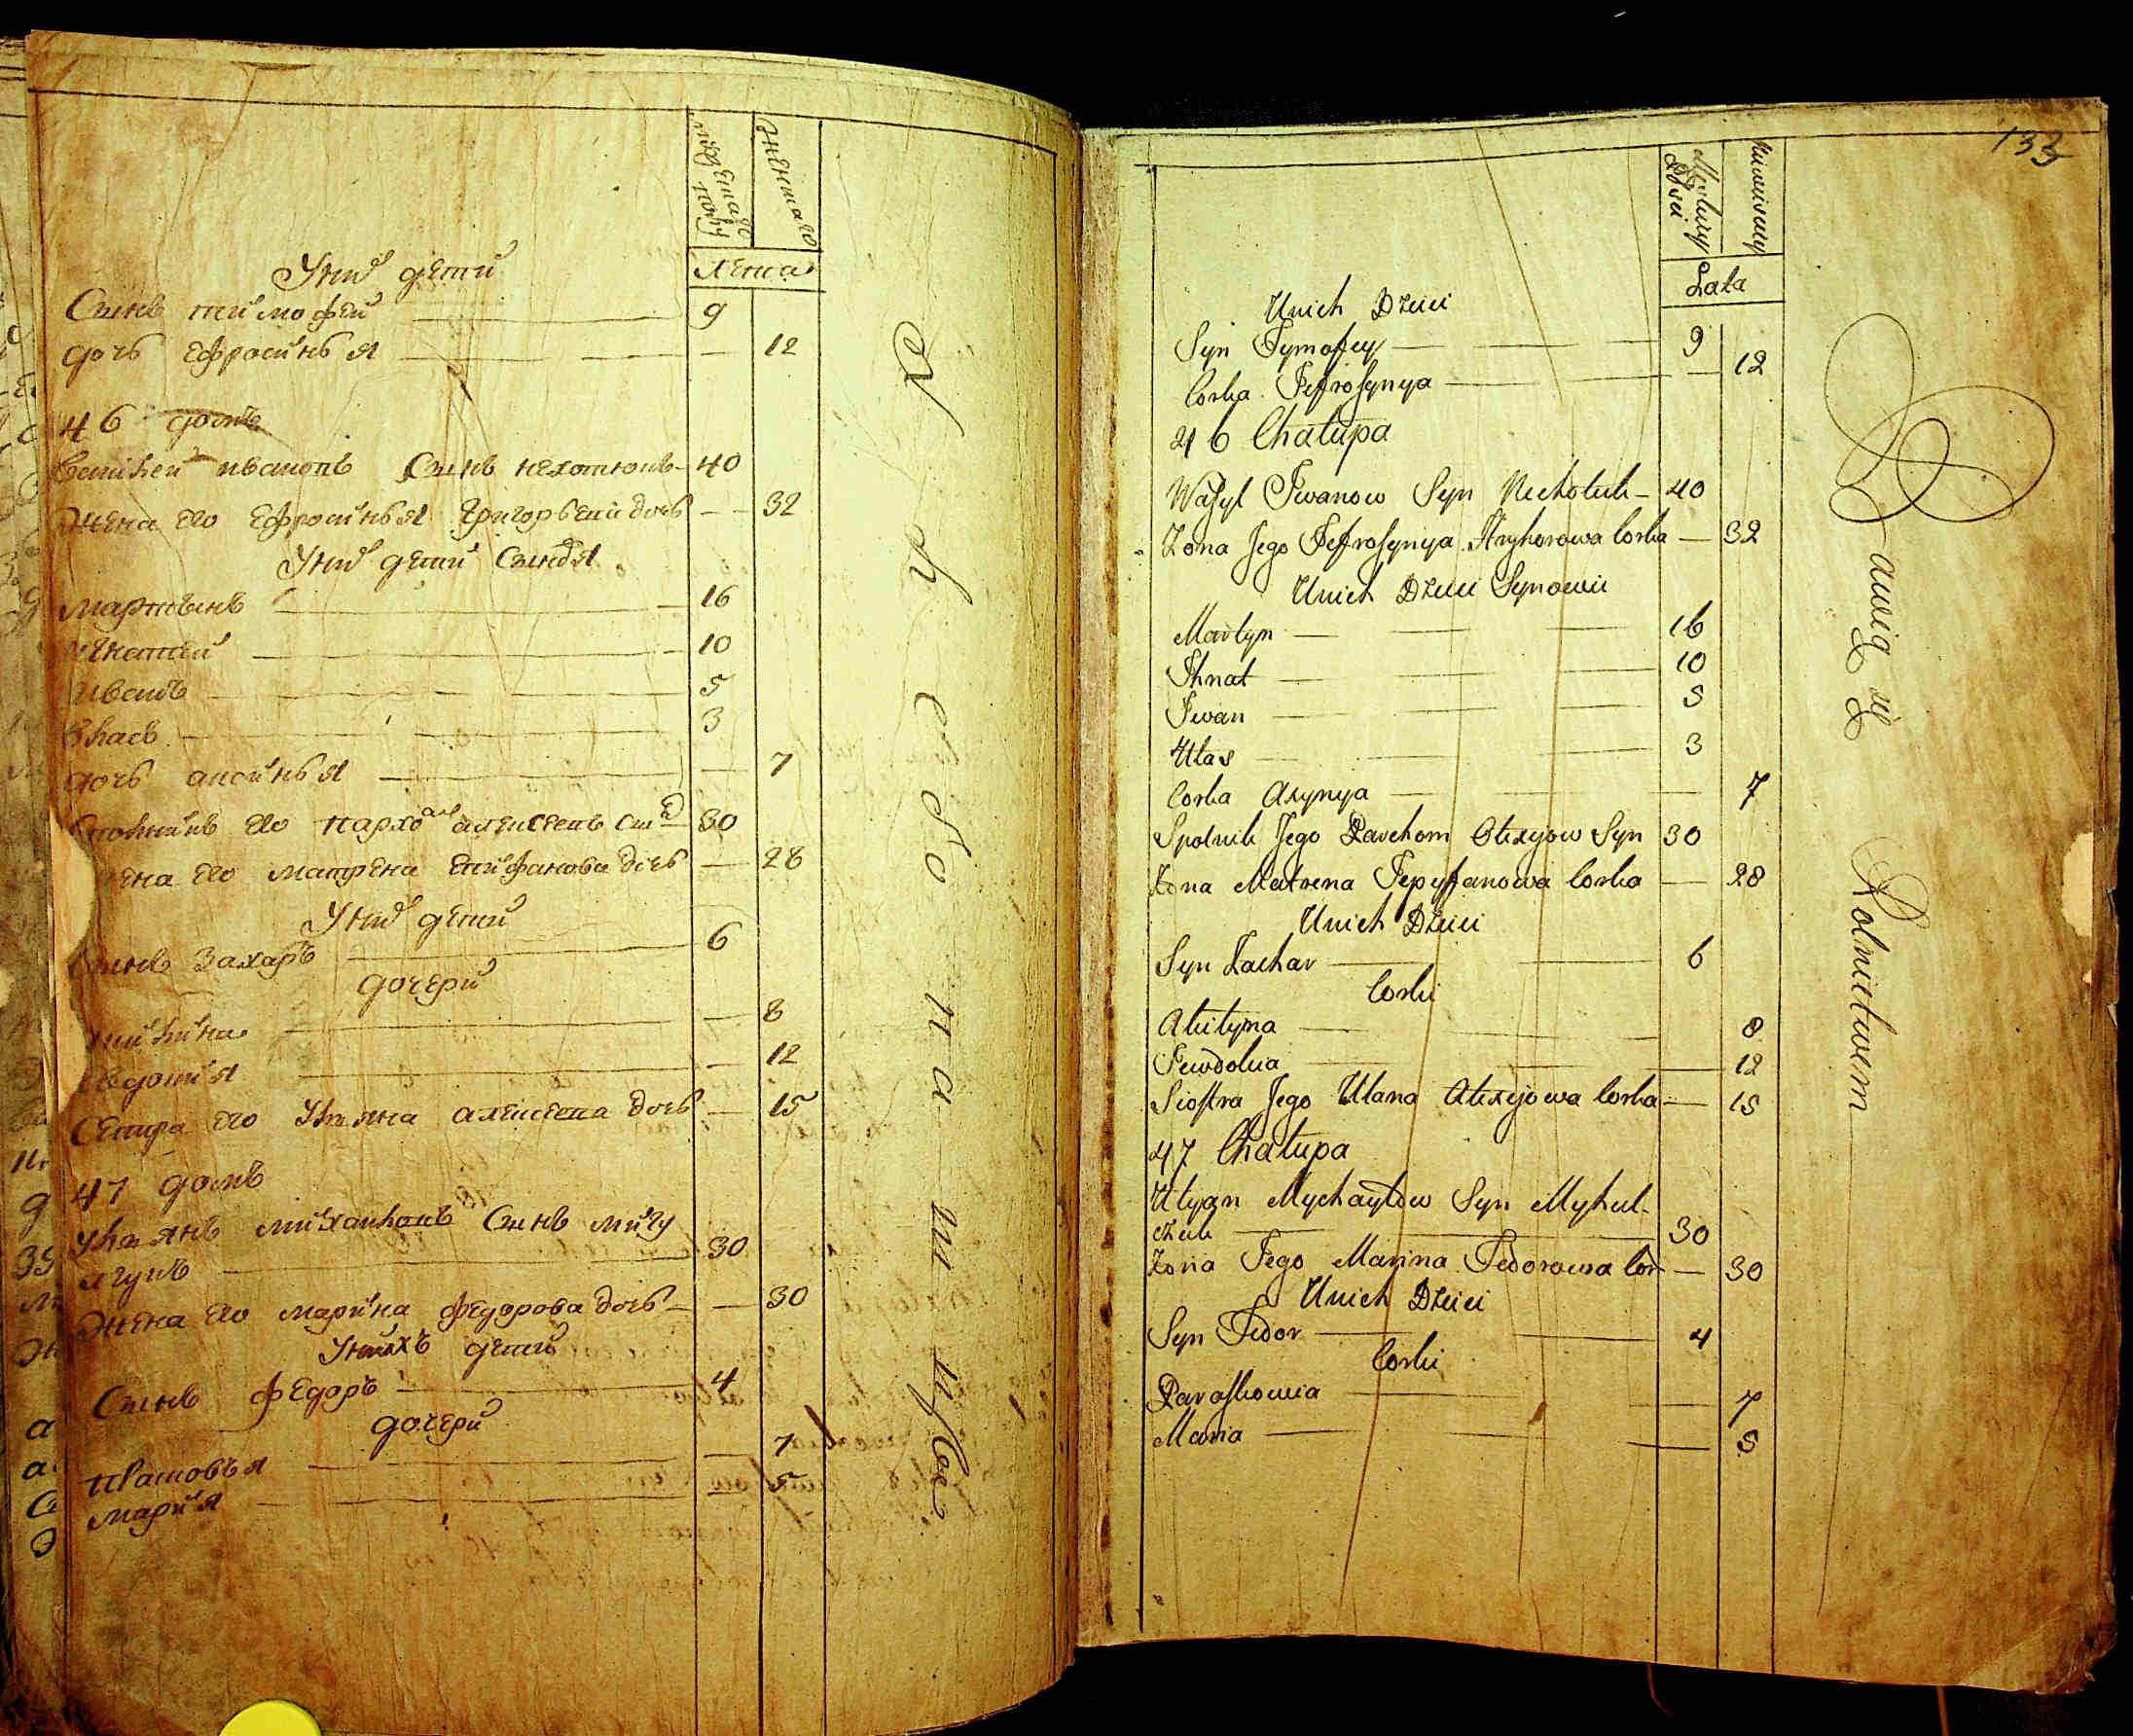 мужескаго полу
женскаго
Лета
У них дети
Сынъ тимофей 9
дочь ефросинья 12
46 домъ
Василей ивановъ Сынъ нехотюкъ 40
жена его ефросинья григорьева дочь 32
У них дети Сыновя
мартынъ 16
игнатей 10
иванъ 5
власъ 3
дочь аксинья 7
его пархом алексеевъ сын 30
жена его матрена епифанова дочь 28
У них дети
Сынъ захаръ 6
дочери
8
12
Сестра его Ульяна алексеева дочь 15
47 домъ
Ульянъ михайловъ Сынъ
30
жена его марина федорова дочь 30
У нихъ дети
Сынъ федоръ 4
дочери
7
мария 5
133
Męskiey Płci
Niewieściey
Lata
Unich Dzieci
Syn Tymofiey 9
Corka Jefrosynya 12
46 Chałupa
Wasyl Jwanow Syn Nechotiuk 40
Zona Jego Jefrosynya Hryhorowa Corka 32
Unich Dzieci Synowie
Martyn 16
Jhnat 10
Jwan 5
Ułas 3
Corka Axynya 7
Spolnik Jego Parchom Alexyow Syn 30
Zona Matrena Jepyfanowa Corka 28
Unich Dzieci
Syn Zachar 6
Corki
Akilyna 8
Fewdokia 12
Siostra Jego Ulana Alexyjowa Corka 15
47 Chałupa
Ulyan Mychayłow Syn Myhul-
czuk 30
Zona Jego Marina Fedorowa Cor 30
Unich Dzieci
Syn Fedor 4
Corki
Paraskowia 7
Maria 5
Bawią się Rolnictwem